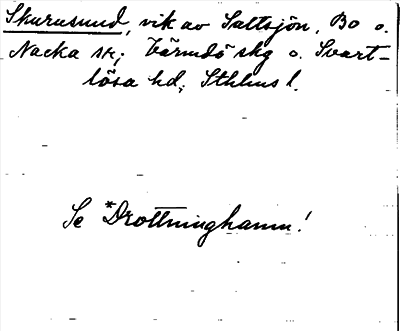 Skurusund, vik av Saltsjön, Bo o.
Nacka sk; Värmdö skg o. Svart-
lösa hd, Sthlms l.
Se *Drottninghamn!